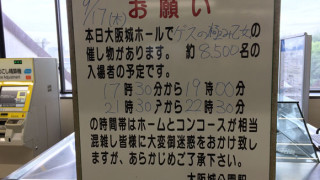 9/17(木)
お願い
本日大阪城ホールでゲスの極み乙女の
催し物があります。約8,500名の
入場者の予定です。
17時30分から19時00分
21時30分から22時30分
の時間帯はホームとコンコースが相当
混雑し皆様に大変御迷惑をおかけ致し
ますが、あらかじめご了承下さい。
大阪城公園駅